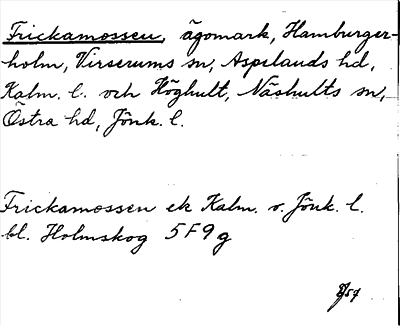 Frickamossen, ägomark, Hamburger-
holm, Virserums sn, Aspelands hd,
Kalm. l. och Höghult, Näshults sn,
Östra hd, Jönk. l.
Frickamossen ek Kalm. o. Jönk. l.
bl. Holmskog 5F9g